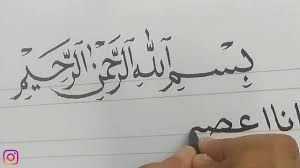 بِسْمِ ٱللَّهِ ٱلرَّحْمَٰنِ ٱلرَّحِيمِ
انا اعصي